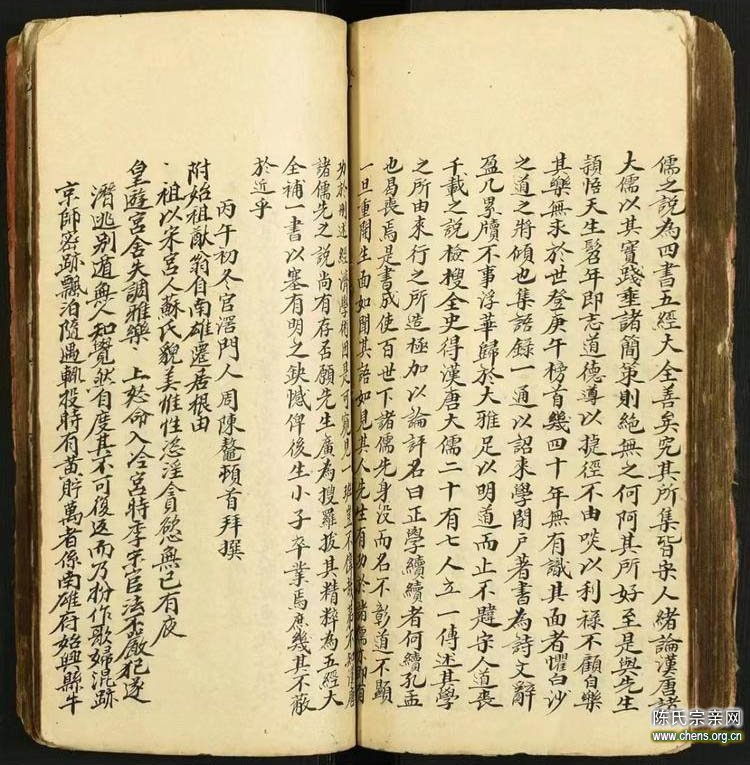 儒之說為四書五經大全善矣究其所集皆宋人緒論漢唐諸
大儒以其實踐垂諸簡策則絕無之何阿其所好至是與先生
頴悟天生髫年即志道德導以捷徑不由啖以利祿不顧自樂
其樂無求於世登庚午榜首幾四十年無有識其面者懼白沙
之道之將傾也集語錄一通以詔來學閉戶著書為詩文辭
盈几累牘不事浮華歸於大雅足以明道而止不襲宋人道喪
千載之說檢搜全史得漢唐大儒二十有七人立一傳述其學
之所由來行之所造極加以論評名曰正學續續者何續孔孟
也曷喪焉是書成使百世下諸儒先身没而名不彰道不顯
一旦重開生面如聞其語如見其人先生有功於諸儒
功於刪述經濟學術因是可窺見一班豈不偉哉
諸儒先之說尚有存否願先生廣為搜羅拔其精粹為五經大
全補一書以塞有明之缺憾俾後生小子卒業焉庶幾其不敝
於近乎
丙午初冬官滘門人周陳鰲頓首拜撰
附始祖猷翁自南雄遷居根由
祖以宋宮人蘇氏貌美惟性恣淫貪慾無已有夜
皇遊宮舍失調雅樂上怒命入冷宮時季宋宮官法不嚴犯遂
潛逃別道無人知覺然自度其不可復返而乃扮作歌婦混跡
京師密跡飄泊隨遇輒投時有黃貯萬者係南雄府始興縣牛
陈氏宗亲网
www.chens.org.cn